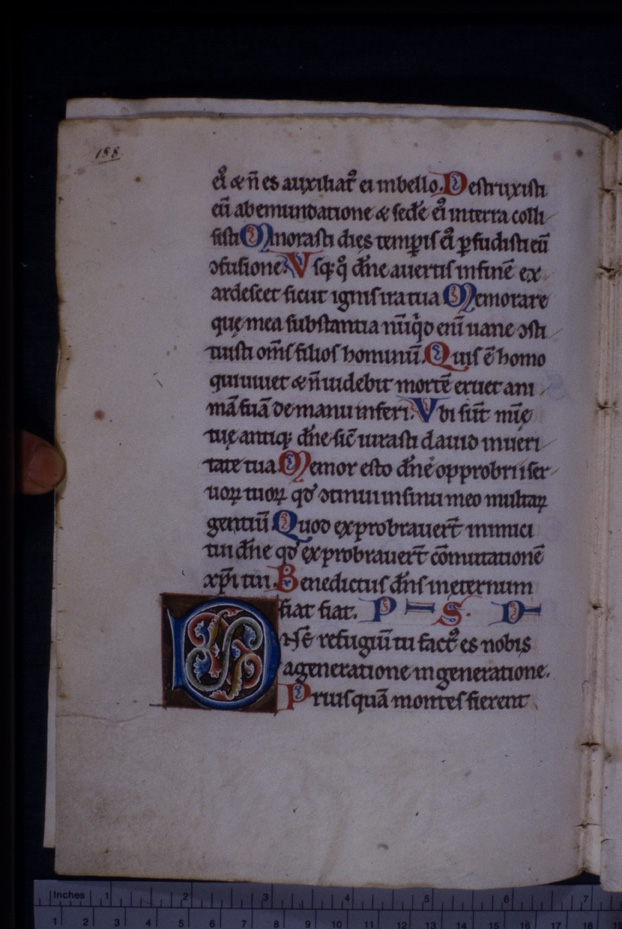 188
eiꝰ & n̄ es auxiliatꝰ ei in bello. Destruxisti
eū ab emundatione & sedē eiꝰ in terra colli
sisti Minorasti dies temporis eiꝰ ꝑfudisti eū
ꝯfusione. Vsq; q̊ dn̄e auertis in finē ex
ardescet sicut ignis ira tua Memorare
quę mea substantia nūqͥd enī uane ꝯsti
tuisti om̄s filios hominū. Quis ē homo
qui uiuet & n̄ uidebit mortē eruet ani
mā suā de manu inferi. Vbi sūt mīę
tuę antiq; dn̄e sic̄ iurasti dauid in ueri
tate tua Memor esto dn̄e opprobrii ser
uoꝝ tuoꝝ qd̓ ꝯtinui in sinu meo multaꝝ
gentiū Quod exprobrauer̄t inimici
tui dn̄e qd̓ exprobrauer̄t cōmutationē
xp̄i tui. Benedictus dn̄s in eternum
fiat fiat. P S. D
D ne refugiū tu factꝰ es nobis
a generatione in generatione.
Priusquā montes fierent
Inches 1 2 3 4 5 6 7
1 2 3 4 5 6 7 8 9 10 11 12 13 14 15 16 17 18